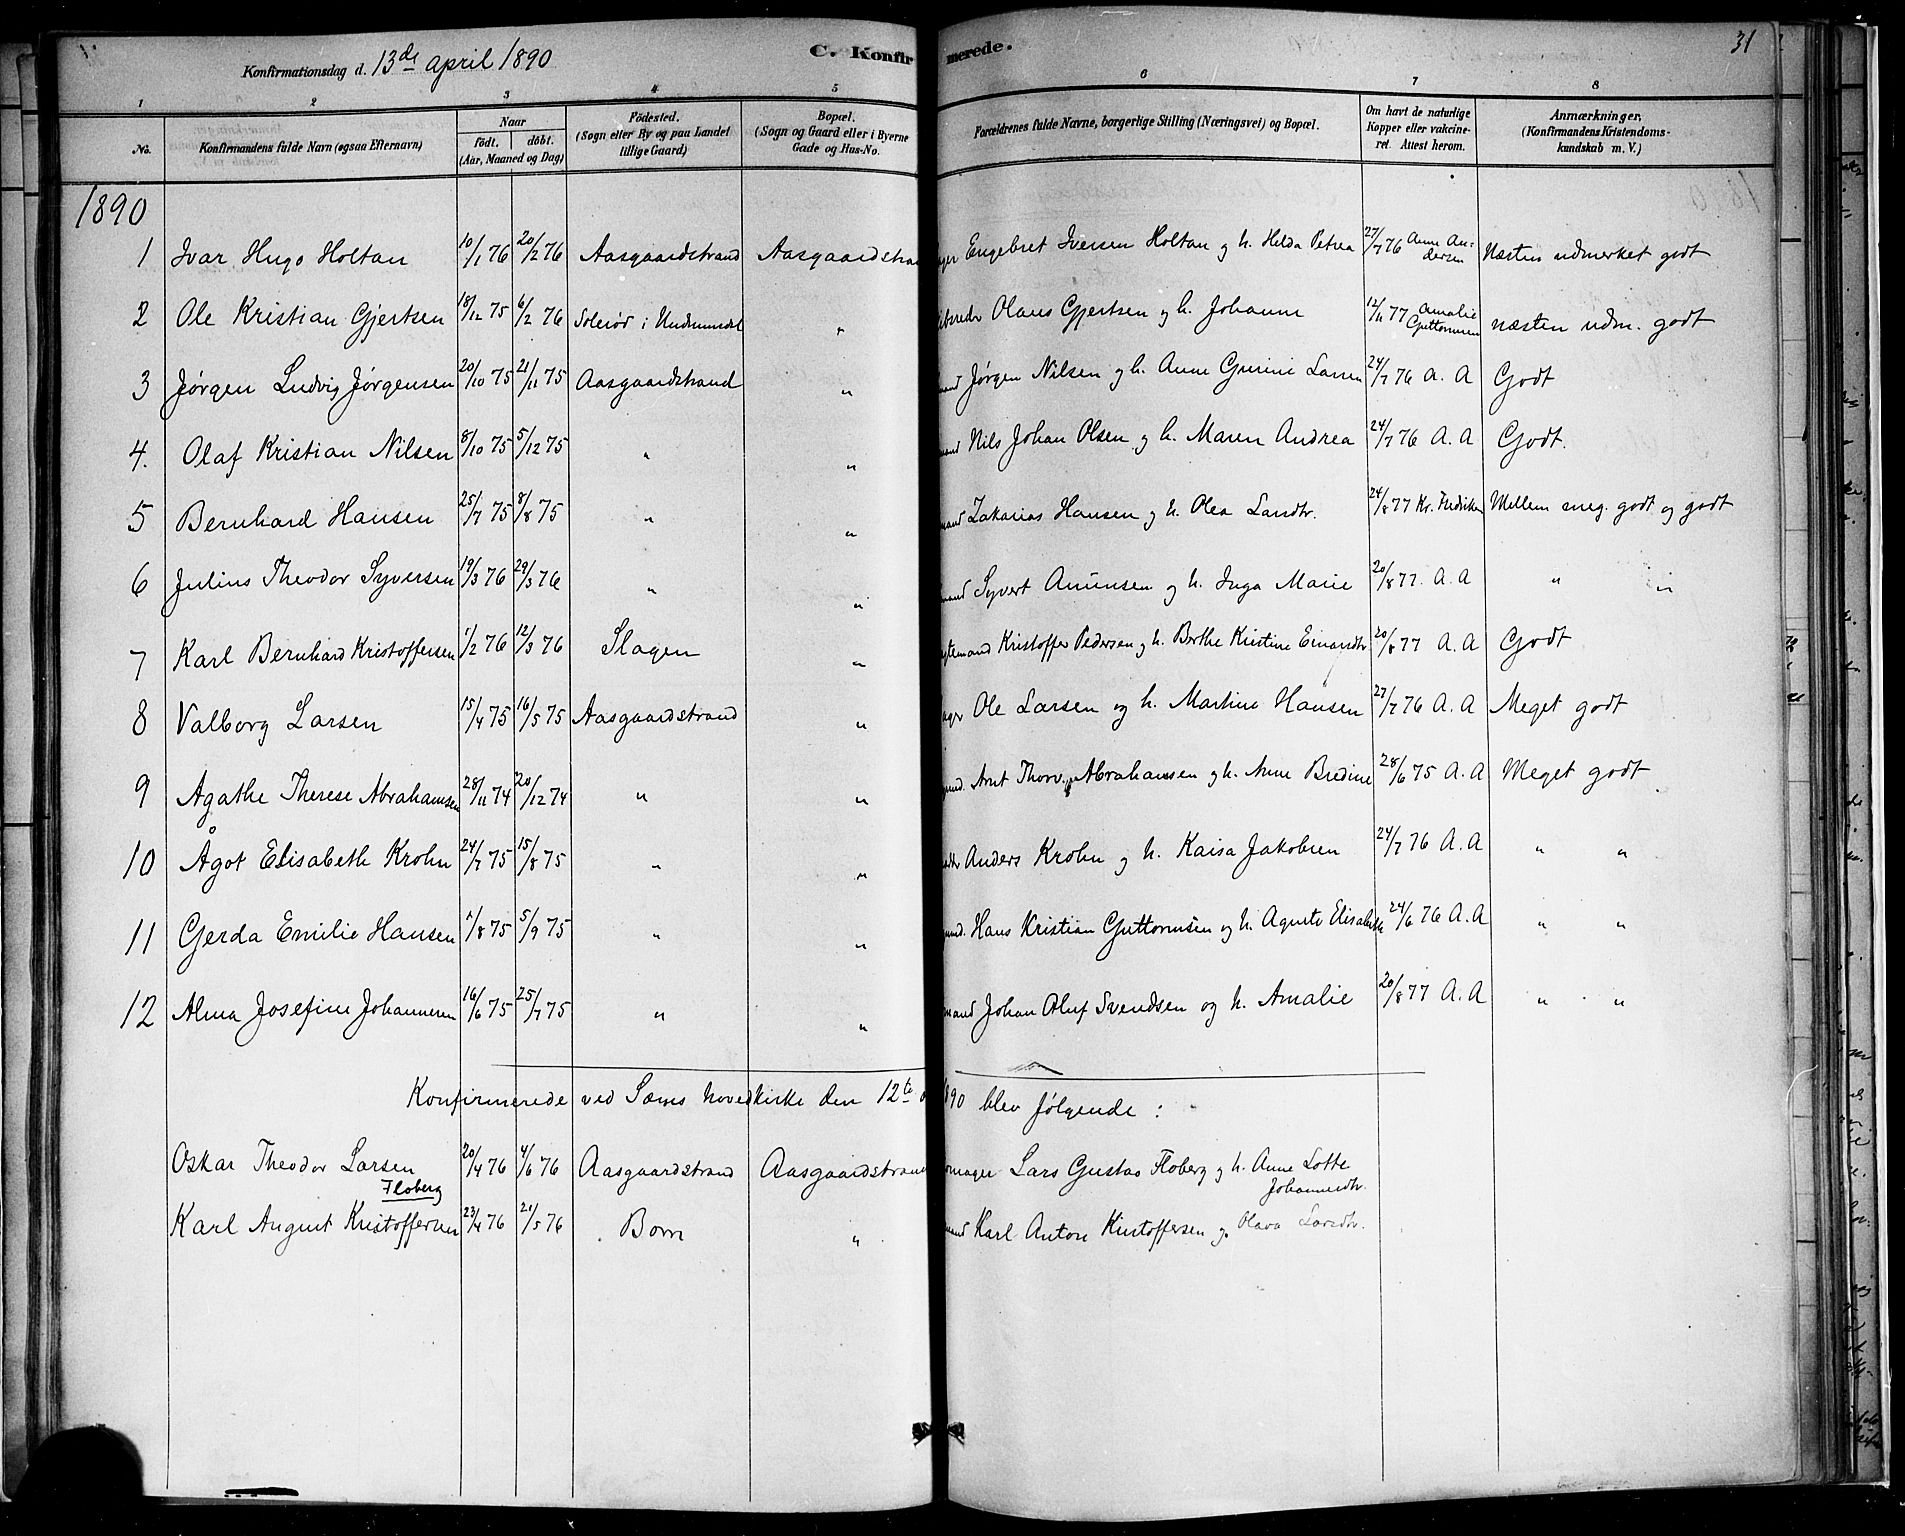 Konfirmationsdag d. 13de April 1890 C. Konfirmerede. 31
1 2 3 4 5 6 7 8
No. Konfirmandens fulde Navn (ogsaa Efternavn) Naar født. døbt. (Aar, Maaned og Dag) Fødested. (Sogn eller By og paa Landet tillige Gaard) Bopæl. (Sogn og Gaard eller i Byerne Gade og Hus-No. Forældrenes fulde Navne, borgerlige Stilling (Næringsvei) og Bopæl. Om havt de naturlige Kopper eller vakcineret. Attest herom. Anmærkninger, (Konfirmandens Kristendomskundskab m. V.)
1890
1 Ivar Hugo Holtan 10/1 76 20/2 76 Aasgaardstrand Aasgaardstrand Engebret Iversen Holtan og h. Helda Petrea 27/7 76 Anne Andersen Næsten udmerket godt
2 Ole Kristian Gjertsen 18/12 75 6/2 76 Solerød i Undrumsdal " Olaus Gjertsen og h. Johanne 12/11 77 Amalie Guttormsen næsten udm. godt
3 Jørgen Ludvig Jørgensen 20/10 75 21/11 75 Aasgaardstrand " Jørgen Nilsen og h. Anne Gurine Larsen 24/7 76 A. A Godt
4. Olaf Kristian Nilsen 8/10 75 5/12 75 " " Nils Johan Olsen og h. Maren Andrea 24/7 76 A. A Godt.
5 Bernhard Hansen 25/7 75 8/8 75 " " Zakarias Hansen og h. Olea Larsdtr. 24/8 77 Kr. Fredriksen Mellem meg. godt og godt
6 Julius Theodor Syversen 19/3 76 29/3 76 " " Syvert Amunsen og h. Inga Marie 20/8 77. A. A " "
7 Karl Bernhard Kristoffersen 1/2 76 12/3 76 Slagen " Kristoffer Pedersen og h. Berthe Kristine Einarsdtr 20/8 77 A. A Godt
8 Valborg Larsen 15/4 75 16/5 75 Aasgaardstrand " Ole Larsen og h. Martine Hansen 27/7 76 A. A Meget godt
9 Agathe Therese Abrahamsen 28/11 74 20/12 74 " " Arnt Thorv. Abrahamsen og h. Anne Bredine 28/6 75 A. A Meget godt
10 Ågot Elisabeth Krohn 24/7 75 15/8 75 " " Anders Krohn og h. Kaisa Jakobsen 24/7 76 A. A " "
11 Gerda Emilie Hansen 1/8 75 5/9 75 " " Hans Kristian Guttormsen og h. Agnete Elisabeth 24/6 76 A. A " "
12 Alma Josefine Johannesen 16/6 75 25/7 75 " " Johan Oluf Svendsen og h. Amalie 20/8 77 A. A " "
Konfirmerede ved Sæms hovedkirke den 12te 1890 blev følgende :
Oskar Theodor Larsen 20/4 76 4/6 76 Aasgaardstrand Aasgaardstrand Lars Gustav Floberg og h. Anne Lotte
Floberg Johannesdtr.
Karl August Kristoffersen 23/4 76 21/5 76 Borre " Karl Anton Kristoffersen og Olava Larsdtr.